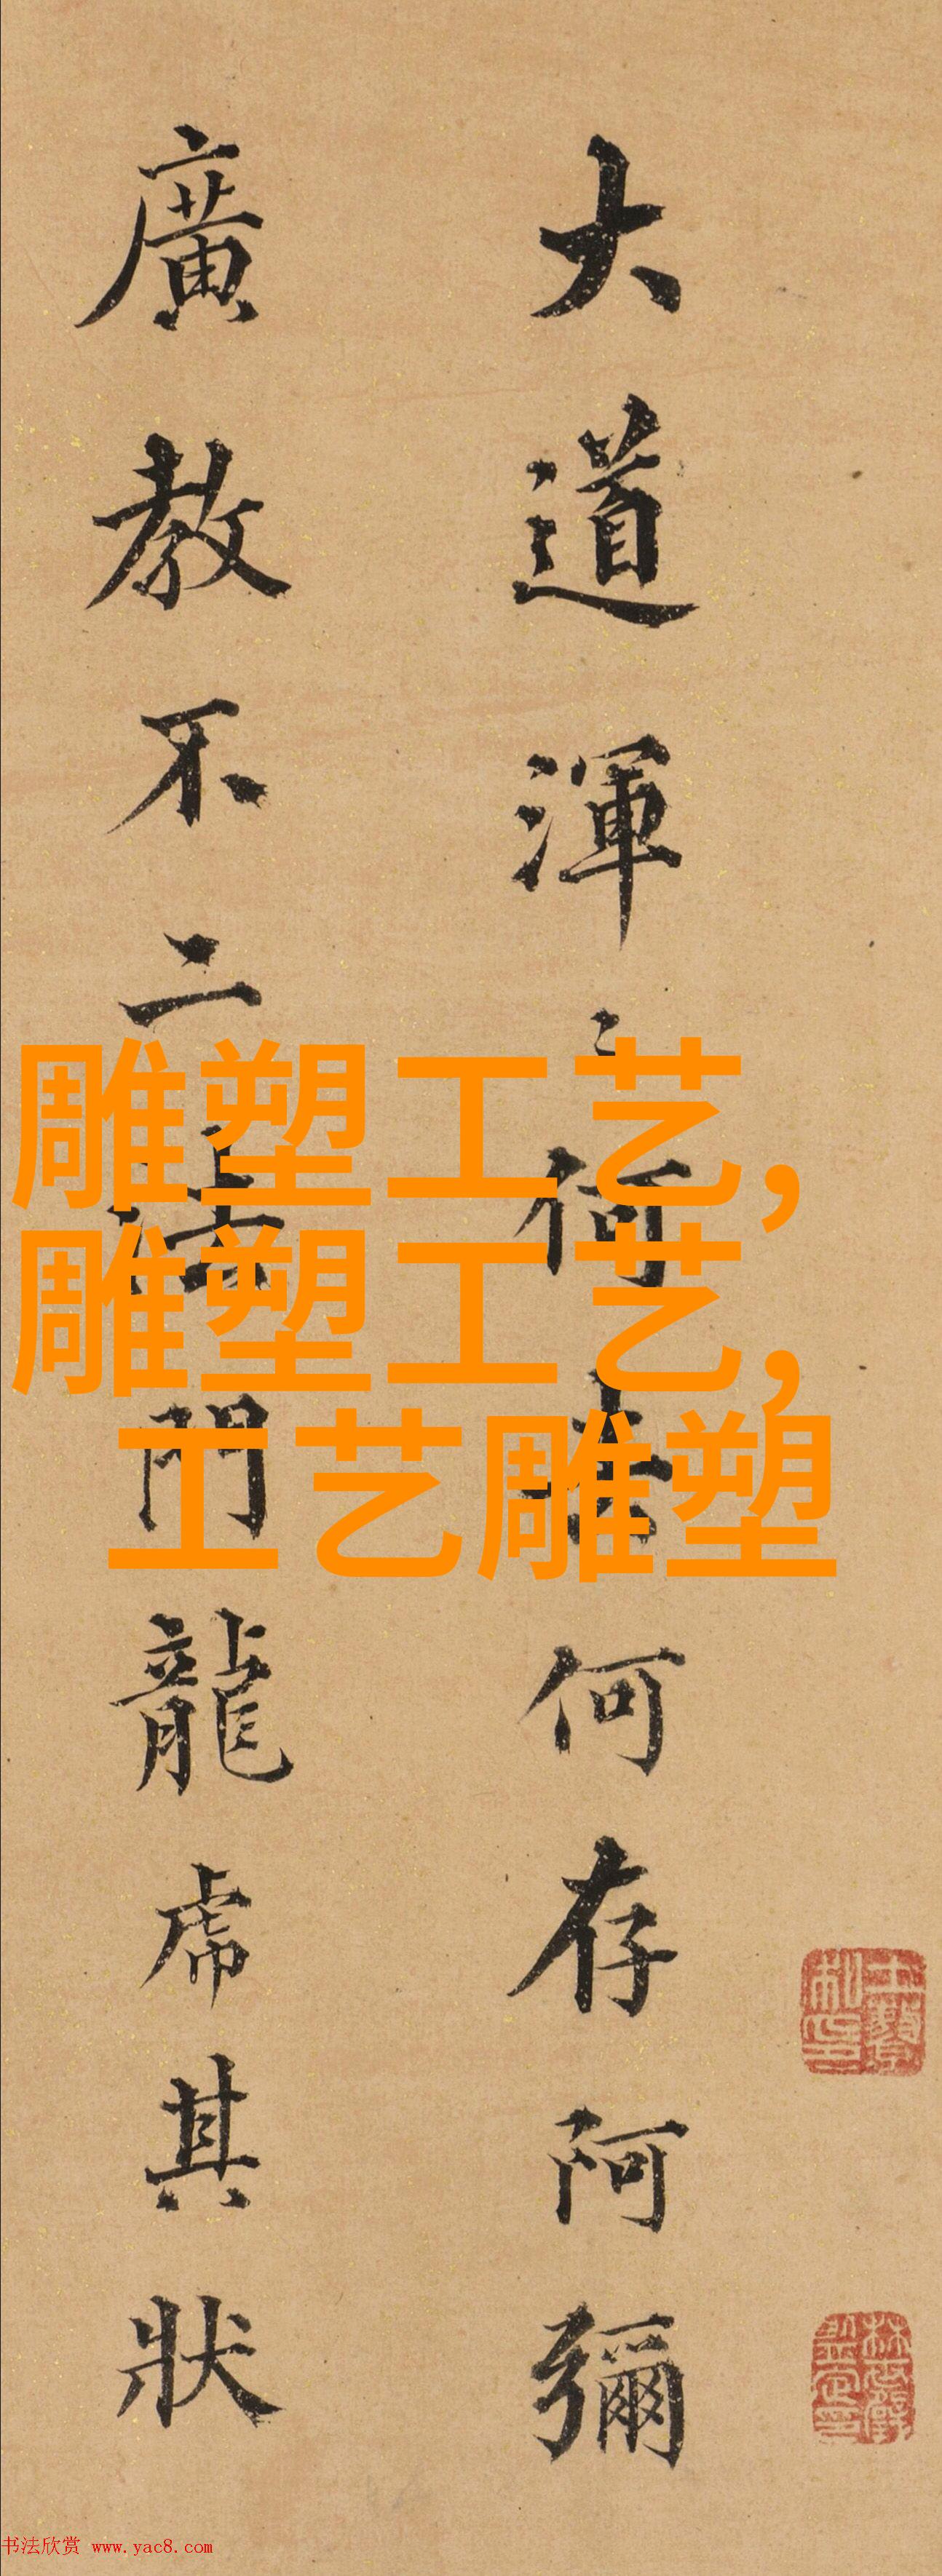 大道渾〻何何存阿彌
廣教不二法門龍虎其狀
雕塑工艺,
雕塑工艺,
工艺雕塑
书法欣赏 www.yac8.com